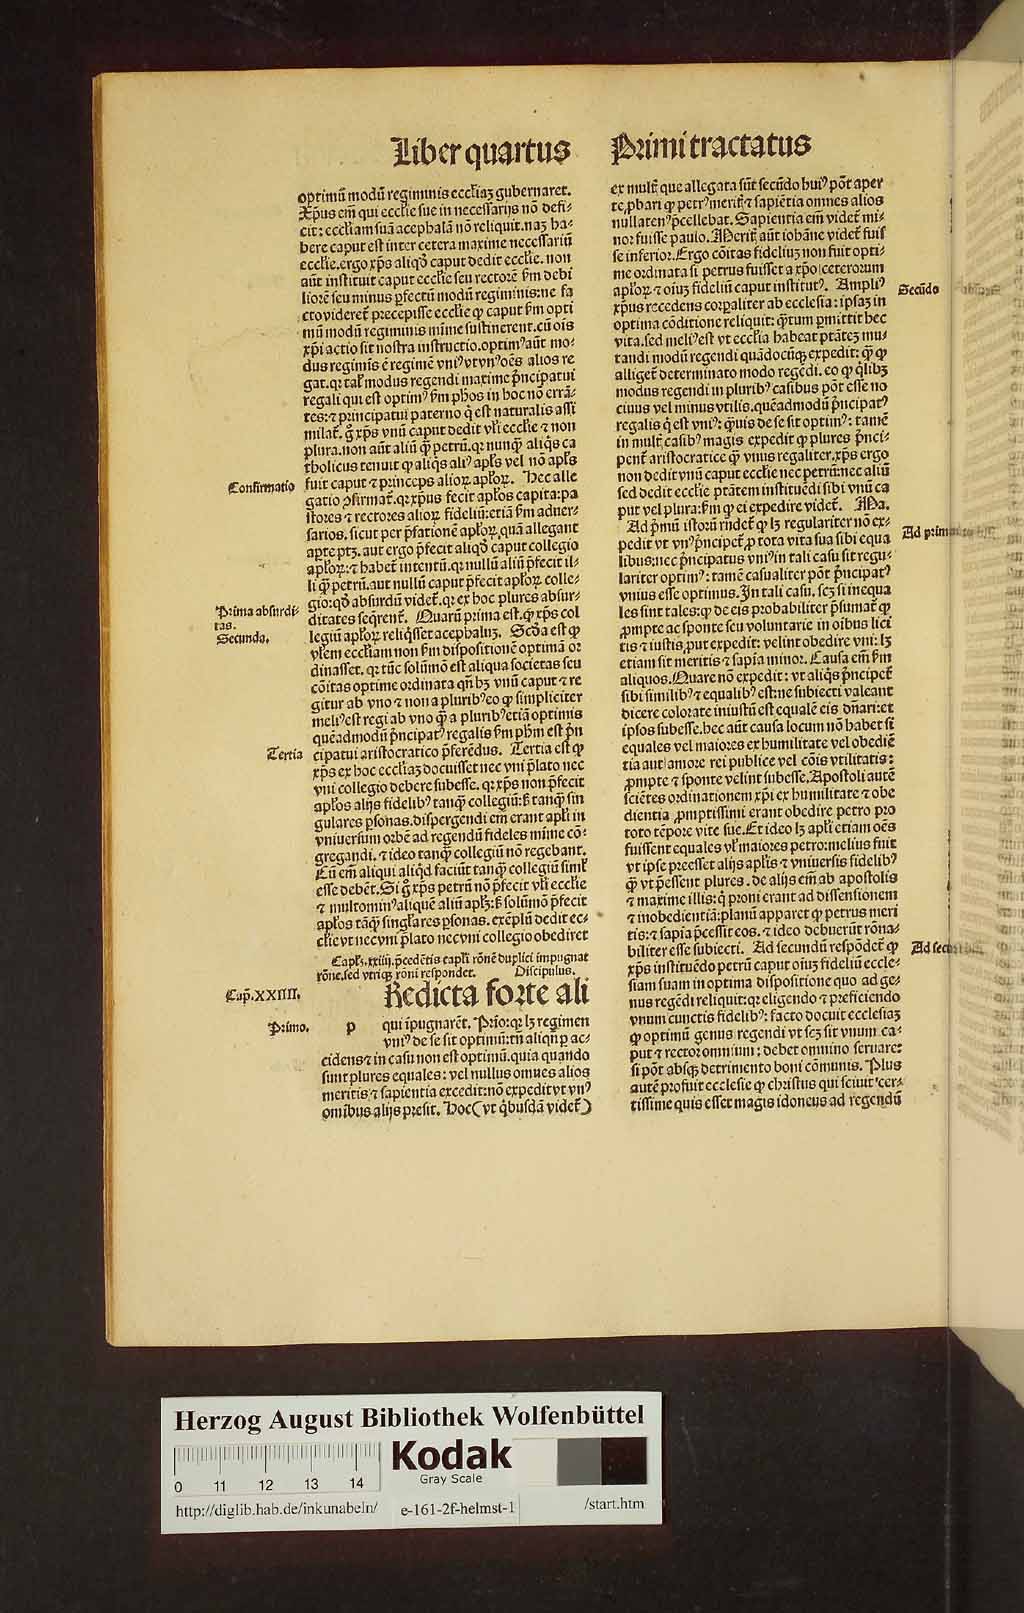 Liber quartus
Primi tractatus
optimū modū regiminis eccłiaꝫ gubernaret.
Xp̄us em̄ qui eccłie sue in necessarijs nō defi-
cit: eccłiam suā acephalā nō reliquit. naꝫ ha-
bere caput est inter cetera maxime necessariū
eccłie. ergo xp̄s aliqd̄ caput dedit eccłie. non
aūt instituit caput eccłie seu rectorē ẜm debi
liorē seu minus ꝑfectū modū regiminis: ne fa
cto videret̄ precepisse eccłie ꝙ caput ẜm opti
mū modū regiminis mīme sustinerent. cū oīs
xp̄i actio sit nostra instructio. optimꝰ aūt mo-
dus regiminis ē regimē vniꝰ vt vnꝰ oēs alios re
gat. qꝛ tał modus regendi maxime p̄ncipatui
regali qui est optimꝰ ẜm ph̄os in hoc nō errā-
tes: ⁊ principatui paterno q̇ est naturalis assi
milat̄. g̊ xp̄s vnū caput dedit vłi eccłie ⁊ non
plura. non aūt aliū qꝫ petrū. qꝛ nunqꝫ aliq̇s ca
tholicus tenuit ꝙ aliq̇s aliꝰ apłs vel nō apłs
fuit caput ⁊ princeps alioꝝ apłoꝝ. Hec alle
Confirmatio
gatio ꝯfirmat̄. qꝛ xp̄us fecit apłos capita: pa
stores ⁊ rectores alioꝝ fidelíū: etiā ẜm aduer-
sarios. sicut per p̄fationē apłoꝝ quā allegant
apte ptꝫ. aut ergo p̄fecit aliqd̄ caput collegio
apłoꝝ: ⁊ habet̄ intentū. qꝛ nullū aliū p̄fecit il-
li qꝫ petrū. aut nullū caput p̄fecit apłoꝝ colle-
gio: qd̄ absurdū videt̄. qꝛ ex hoc plures absur-
Prima absurdi-
tas.
ditates seq̄rent̄. Quarū prima est. ꝙ xp̄s col
legiū apłoꝝ reliq̇sset acephalū. Scd̄a est ꝙ
Secunda.
vłem eccłiam non ẜm dispositionē optimā or
dinasset. qꝛ tūc solūmō est aliqua societas seu
cōitas optime ordinata qn̄ hꝫ vnū caput ⁊ re
gitur ab vno ⁊ non a pluribꝰ eo ꝙ simpliciter
meliꝰ est regi ab vno qꝫ a pluribꝰ etiā optimis
quēadmodū p̄ncipatꝰ regalis ẜm ph̄m est p̄n
cipatui aristocratico p̄ferēdus. Tertia est ꝙ
Tertia
xp̄s ex hoc eccłiaꝫ docuisset nec vni p̄lato nec
vni collegio debere subesse. qꝛ xp̄s non p̄fecit
apłos alijs fidelibꝰ tanqꝫ collegiū: ẜ tanqꝫ sin
gulares ꝑsonas. dispergendi em̄ erant apłi in
vniuersum orbē ad regendū fideles mīme cō-
gregandi. ⁊ ideo tanqꝫ collegiū nō regebant.
Cū em̄ aliqui aliq̇d faciūt tanqꝫ collegiū simł
esse debēt. Si g̊ xp̄s petrū nō p̄fecit vłi eccłie
⁊ multominꝰ aliquē aliū apłꝫ: ẜ solūmō p̄fecit
apłos tāqꝫ singłares ꝑsonas. exēplū dedit ec-
clie vt nec vni p̄lato nec vni collegio obediret
Capłꝫ. xxiiij. p̄cedētis capłi rōnē duplici impugnat
rōne. sed vtriqꝫ rōni respondet. Discipulus.
Cap. XXIIII.
Redicta forte ali
Primo.
p qui īpugnarēt. Prīo: qꝛ lꝫ regimen
vniꝰ de se sit optimū: tn̄ aliqn̄ ꝑ ac-
cidens ⁊ in casu non est optimū. quia quando
sunt plures equales: vel nullus omnes alios
meritis ⁊ sapientia excedit: nō expedit vt vnꝰ
omnibus alijs presit. Hoc (vt q̇busdā videt̄)
ex mult̄ que allegata sūt secūdo huiꝰ pōt aper
te ꝓbari ꝙ petrꝰ merit̄ ⁊ sapiētia omnes alios
nullatenꝰ p̄cellebat. Sapientia em̄ videt̄ mi-
nor fuisse paulo. Merit̄ aūt iohāne videt̄ fuis
se inferior. Ergo cōitas fideliuꝫ non fuit opti-
me ordinata si petrus fuisset a xp̄o ceterorum
apłoꝝ ⁊ oīuꝫ fideliū caput institutꝰ. Ampliꝰ
Secūdo
xp̄us recedens corꝑaliter ab ecclesia: ipsaꝫ in
optima cōditione reliquit: qꝫtum ꝑmittit hec
vita. sed meliꝰ est vt eccłia habeat ptātēꝫ mu-
tandi modū regendi quādocūqꝫ expedit: qꝫ ꝙ
alliget̄ determinato modo regēdi. eo ꝙ q̇libꝫ
modus regendi in pluribꝰ casibus pōt esse no
ciuus vel minus vtilis. quēadmodū p̄ncipatꝰ
regalis q̇ est vniꝰ: qꝫuis de se sit optimꝰ: tamē
in mult̄ casibꝰ magis expedit ꝙ plures p̄nci-
pent̄ aristocratice qꝫ vnus regaliter. xp̄s ergo
non dedit vnū caput eccłie nec petrū: nec aliū
sed dedit eccłie ptātem instituēdi sibi vnū ca
put vel plura: ẜm ꝙ ei expedire videt̄. Ma.
Ad p̄mū istorū rn̄det̄ ꝙ lꝫ regulariter nō ex-
Ad primū
pedit vt vnꝰ p̄ncipet̄ ꝓ tota vita sua sibi equa
libus: nec p̄ncipatus vniꝰ in tali casu sit regu-
lariter optimꝰ: tamē casualiter pōt p̄ncipatꝰ
vnius esse optimus. In tali casu. scꝫ si inequa
les sint tales: ꝙ de eis probabiliter p̄sumat̄ ꝙ
ꝓmpte ac sponte seu voluntarie in oībus lici
tis ⁊ iustis ꝓut expedit: velint obedire vni: lꝫ
etiam sit meritis ⁊ sapīa minor. Causa em̄ ẜm
aliquos. Quare nō expedit: vt aliq̇s p̄ncipet̄
sibi similibꝰ ⁊ equalibꝰ est: ne subiecti valeant
dicere colorate iniustū est equalē eis dn̄ari: et
ipsos subesse. hec aūt causa locum nō habet si
equales vel maiores ex humilitate vel obediē
tia aut amore rei publice vel cōis vtilitatis:
ꝓmpte ⁊ sponte velint subesse. Apostoli autē
sciētes ordinationem xp̄i ex humilitate ⁊ obe
dientia ꝓmptissimi erant obedire petro pro
toto tēpore vite sue. Et ideo lꝫ apłi etiam oēs
fuissent equales vł maiores petro: melius fuit
vt ipse preesset alijs apłis ⁊ vniuersis fidelibꝰ
qꝫ vt p̄essent plures. de alijs em̄ ab apostolis
⁊ maxime illis: q̇ proni erant ad dissensionem
⁊ inobedientiā: planū apparet ꝙ petrus meri
tis: ⁊ sapīa p̄cessit eos. ⁊ ideo debuerūt rōna-
biliter esse subiecti. Ad secundū respōdet̄ ꝙ
Ad secū
xp̄s instituēdo petrū caput oīuꝫ fideliū eccle-
siam suam in optima dispositione quo ad ge-
nus regēdi reliquit: qꝛ eligendo ⁊ preficiendo
vnum cunctis fidelibꝰ: facto docuit ecclesiaꝫ
ꝙ optimū genus regendi vt scꝫ sit vnum ca-
put ⁊ rector omnium: debet omnino seruare:
si pōt absqꝫ detrimento boni cōmunis. Plus
autē profuit ecclesie ꝙ christus qui sciuit cer-
tissime quis esset magis idoneus ad regendū
Herzog August Bibliothek Wolfenbüttel
Kodak
Gray Scale
0 11 12 13 14
http://diglib.hab.de/inkunabeln/ e-161-2f-helmst-1 /start.htm